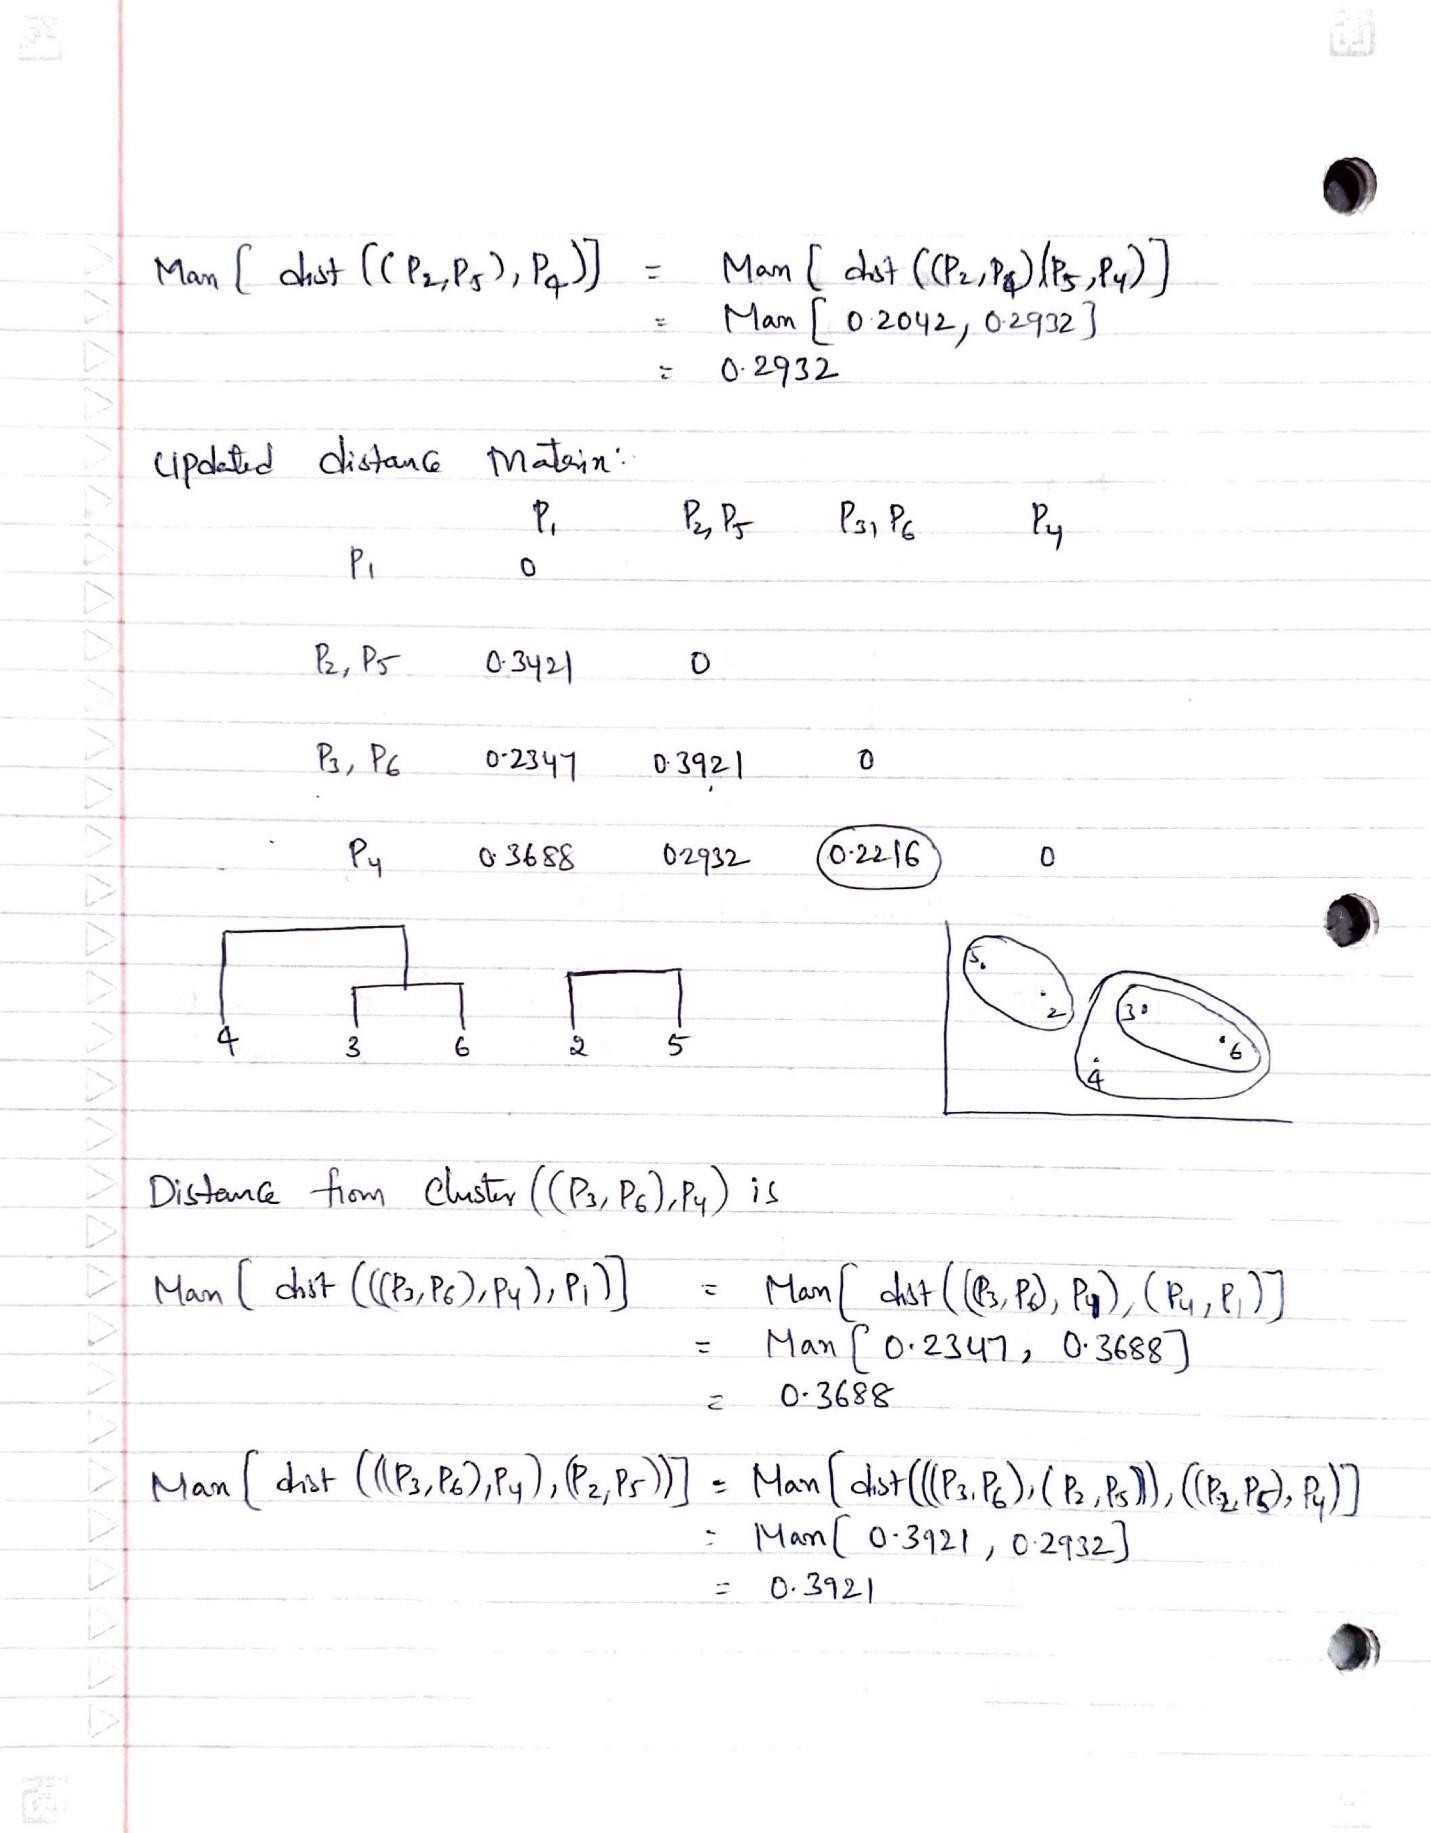 Man [ dist ((P2,P5), P4)] = Man [ dist ((P2,P4)(P5,P4)]
= Man [ 0.2042, 0.2932]
= 0.2932
Updated distance Matrix:
P1 P2, P5 P3, P6 P4
P1 0
P2, P5 0.3421 0
P3, P6 0.2347 0.3921 0
P4 0.3688 02932 0.2216 0
4 3 6 2 5
5 2 3 6 4
Distance from Cluster ((P3, P6), P4) is
Man [ dist (((P3, P6), P4), P1)] = Man [ dist ((P3, P6), P4), (P4, P1)]
= Man [ 0.2347, 0.3688]
= 0.3688
Man [ dist (((P3, P6), P4), (P2, P5))] = Man [ dist (((P3, P6), (P2, P5))), ((P2, P5), P4)]
= Man [ 0.3921, 0.2932]
= 0.3921